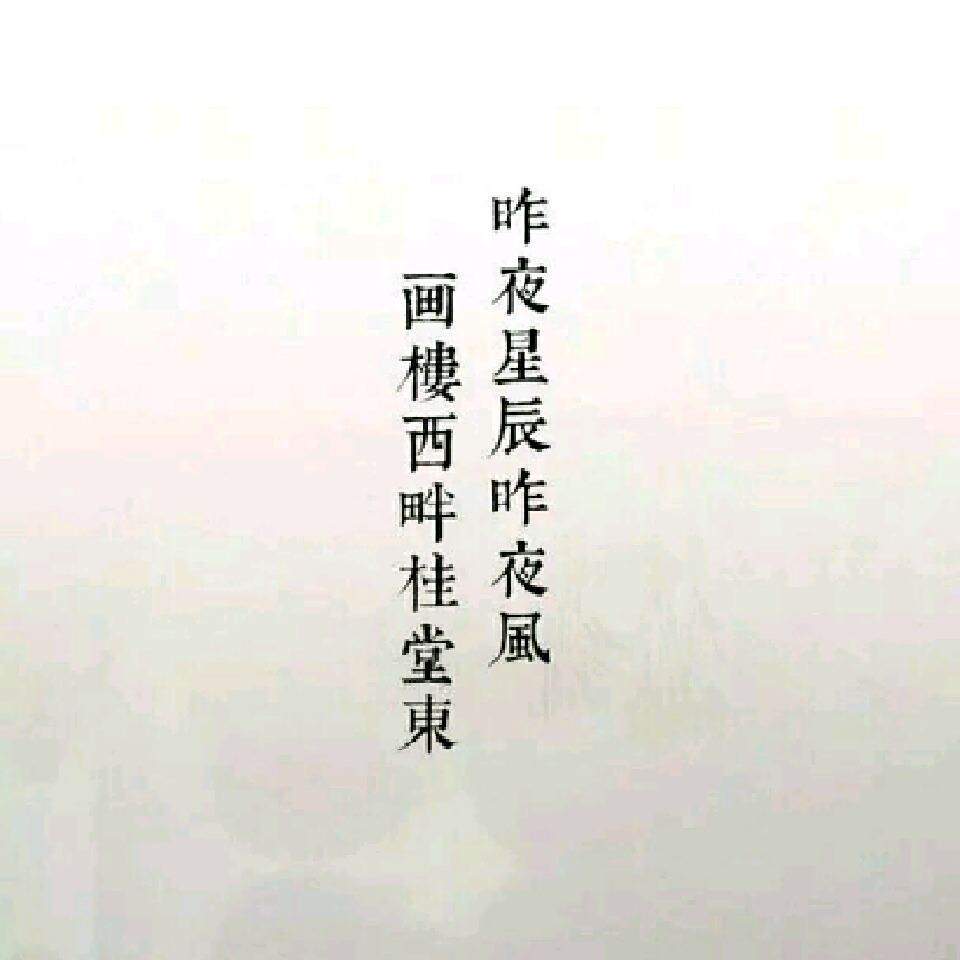 昨夜星辰昨夜風
画樓西畔桂堂東